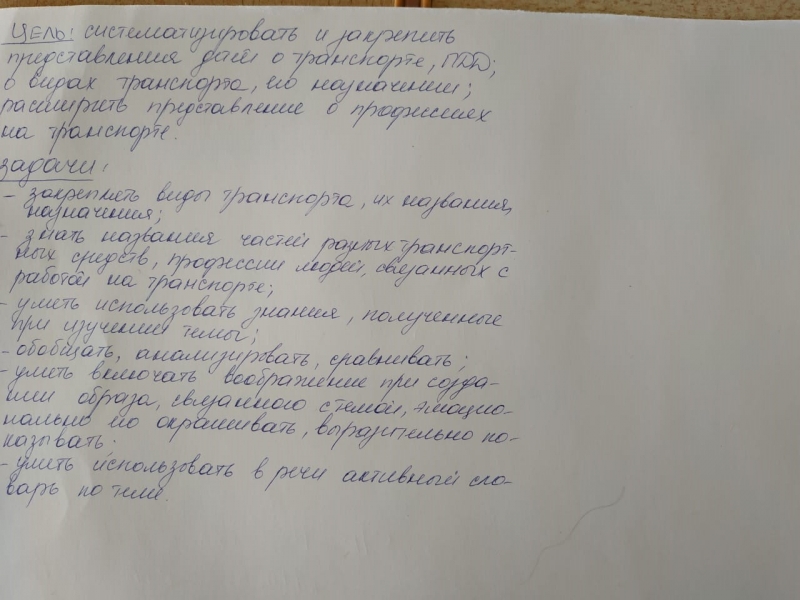 Цель: систематизировать и закрепить
представления детей о транспорте, ПДД;
о видах транспорта, его назначении;
расширить представление о профессиях
на транспорте.
Задачи:
- закреплять виды транспорта, их названия,
назначения;
- знать названия частей разных транспорт-
ных средств, профессии людей, связанных с
работой на транспорте;
- уметь использовать знания, полученные
при изучении темы;
- обобщать, анализировать, сравнивать;
- уметь включать воображение при созда-
нии образа, связанного с темой, эмоцио-
нально его окрашивать, выразительно по-
казывать.
- уметь использовать в речи активный сло-
варь по теме.